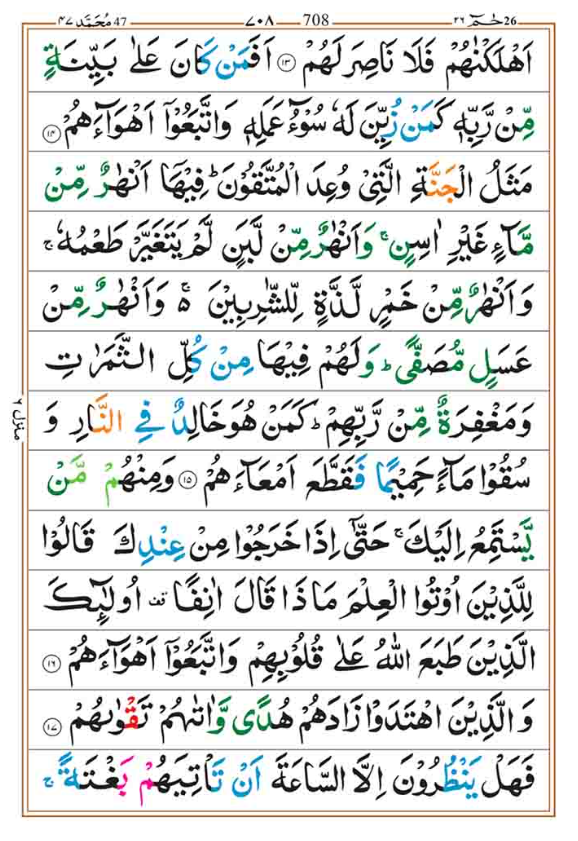 حٰمٓ 26 ٢٦ 708 ٧٠٨ مُحَمَّد 47 ٤٧
اَهْلَكْنٰهُمْ فَلَا نَاصِرَ لَهُمْ ۝۱۳ اَفَمَنْ كَانَ عَلٰى بَيِّنَةٍ
مِّنْ رَّبِّهٖ كَمَنْ زُيِّنَ لَهٗ سُوْٓءُ عَمَلِهٖ وَاتَّبَعُوْۤا اَهْوَآءَهُمْ ۝۱۴
مَثَلُ الْجَنَّةِ الَّتِيْ وُعِدَ الْمُتَّقُوْنَ ؕ فِيْهَاۤ اَنْهٰرٌ مِّنْ
مَّآءٍ غَيْرِ اٰسِنٍ ۚ وَاَنْهٰرٌ مِّنْ لَّبَنٍ لَّمْ يَتَغَيَّرْ طَعْمُهٗ ۚ
وَاَنْهٰرٌ مِّنْ خَمْرٍ لَّذَّةٍ لِّلشّٰرِبِيْنَ ۬ۚ وَاَنْهٰرٌ مِّنْ
عَسَلٍ مُّصَفًّى ؕ وَلَهُمْ فِيْهَا مِنْ كُلِّ الثَّمَرٰتِ
وَمَغْفِرَةٌ مِّنْ رَّبِّهِمْ ؕ كَمَنْ هُوَ خَالِدٌ فِي النَّارِ وَ
سُقُوْا مَآءً حَمِيْمًا فَقَطَّعَ اَمْعَآءَهُمْ ۝۱۵ وَمِنْهُمْ مَّنْ
يَّسْتَمِعُ اِلَيْكَ ۚ حَتّٰۤى اِذَا خَرَجُوْا مِنْ عِنْدِكَ قَالُوْا
لِلَّذِيْنَ اُوْتُوا الْعِلْمَ مَاذَا قَالَ اٰنِفًا ۫ اُولٰٓئِكَ
الَّذِيْنَ طَبَعَ اللّٰهُ عَلٰى قُلُوْبِهِمْ وَاتَّبَعُوْۤا اَهْوَآءَهُمْ ۝۱۶
وَالَّذِيْنَ اهْتَدَوْا زَادَهُمْ هُدًى وَّاٰتٰىهُمْ تَقْوٰىهُمْ ۝۱۷
فَهَلْ يَنْظُرُوْنَ اِلَّا السَّاعَةَ اَنْ تَاْتِيَهُمْ بَغْتَةً ۚ
منزل ٦